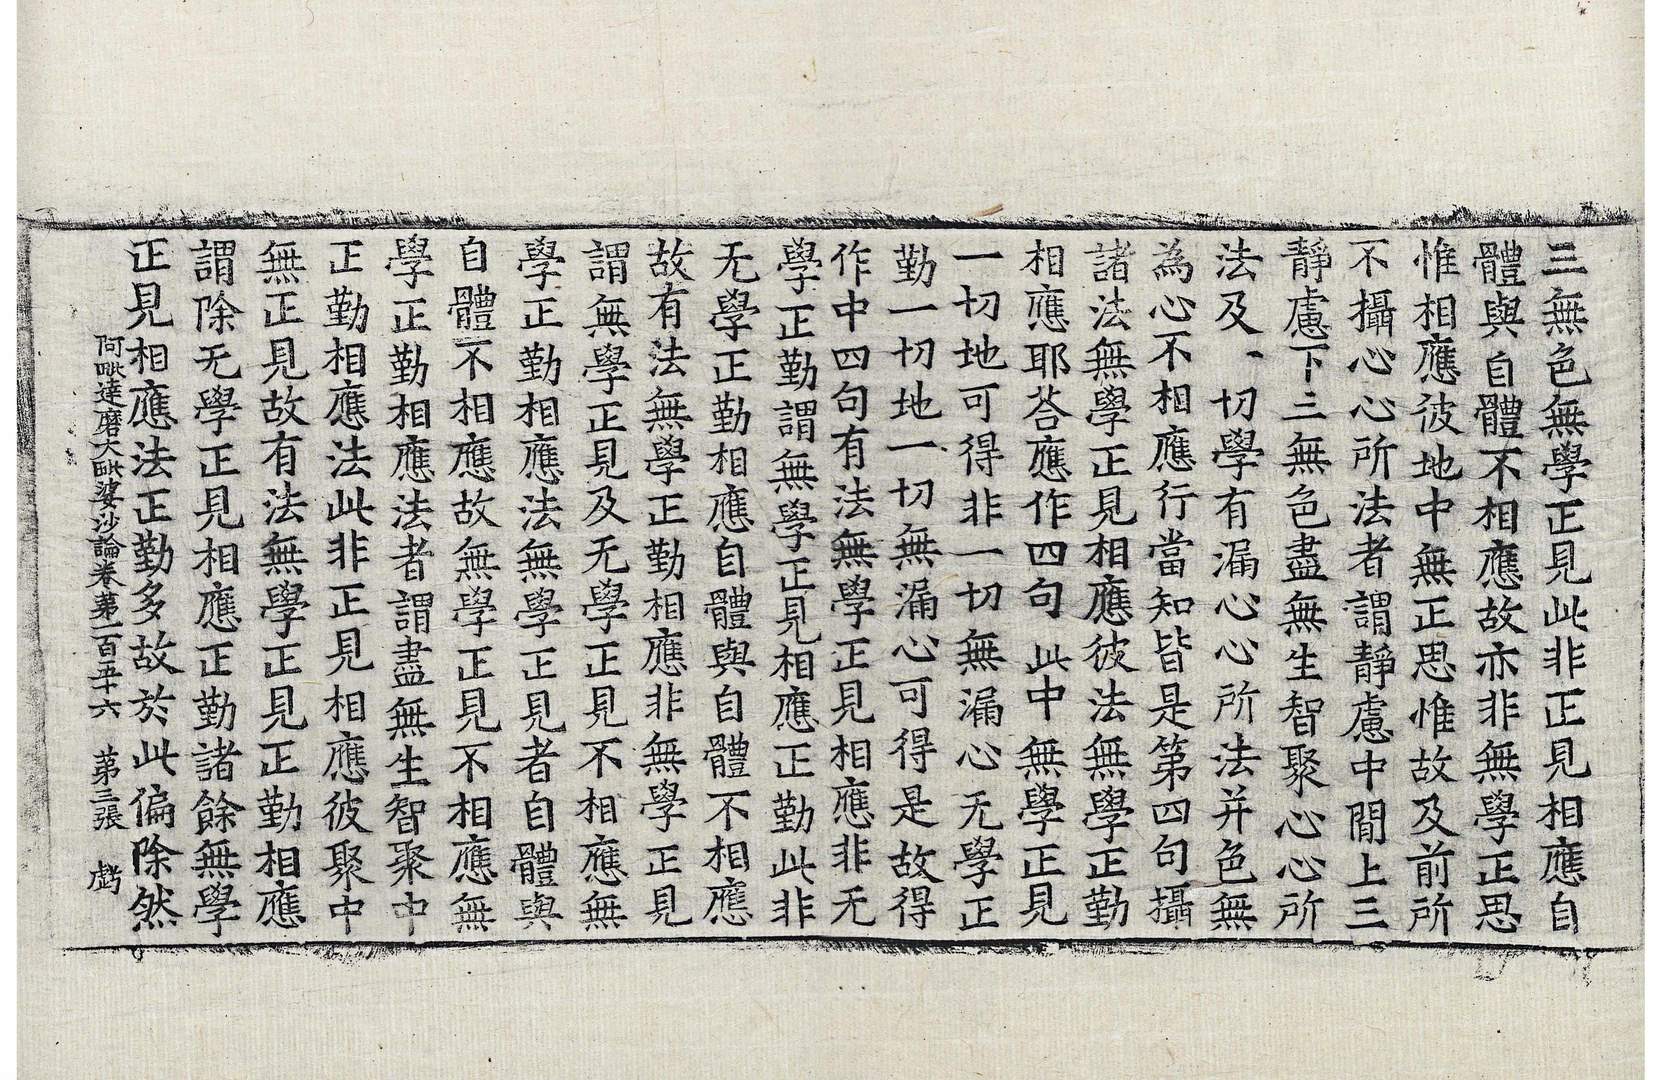 三無色無學正見此非正見相應自
體與自體不相應故亦非無學正思
惟相應彼地中無正思惟故及前所
不攝心心所法者謂靜慮中閒上三
靜慮下三無色盡無生智聚心心所
法及一切學有漏心心所法并色無
為心不相應行當知皆是第四句攝
諸法無學正見相應彼法無學正勤
相應耶荅應作四句此中無學正見
一切地可得非一切無漏心无學正
勤一切地一切無漏心可得是故得
作中四句有法無學正見相應非无
學正勤謂無學正見相應正勤此非
无學正勤相應自體與自體不相應
故有法無學正勤相應非無學正見
謂無學正見及无學正見不相應無
學正勤相應法無學正見者自體與
自體不相應故無學正見不相應無
學正勤相應法者謂盡無生智聚中
正勤相應法此非正見相應彼聚中
無正見故有法無學正見正勤相應
謂除无學正見相應正勤諸餘無學
正見相應法正勤多故於此偏除然
阿毗達磨大毗婆沙論卷第一百五十六 第三張